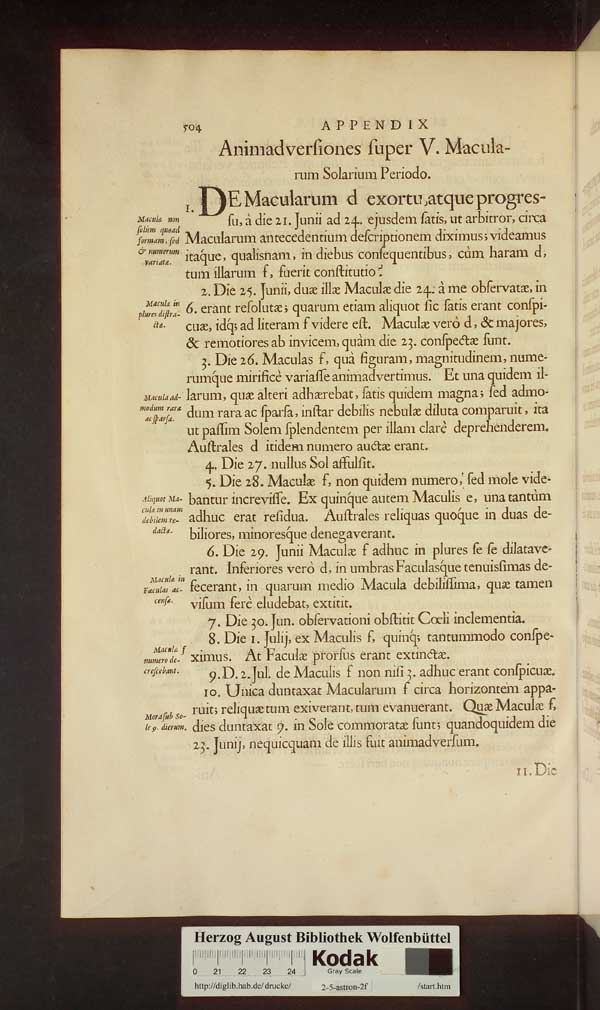 504 APPENDIX
Animadversiones super V. Macula-
rum Solarium Periodo.
1. DE Macularum d exortu, atque progres-
su, à die 21. Junii ad 24. ejusdem satis, ut arbitror, circa
Macularum antecedentium descriptionem diximus; videamus
itaque, qualisnam, in diebus consequentibus, cùm harum d,
tum illarum f, fuerit constitutio?
Macula non
solùm quoad
formam, sed
& numerum
variatæ.
2. Die 25. Junii, duæ illæ Maculæ die 24. à me observatæ, in
6. erant resolutæ; quarum etiam aliquot sic satis erant conspi-
cuæ, idq; ad literam f videre est. Maculæ verò d, & majores,
& remotiores ab invicem, quàm die 23. conspectæ sunt.
Maculæ in
plures distra-
ctæ.
3. Die 26. Maculas f, quà figuram, magnitudinem, nume-
rumque mirificè variasse animadvertimus. Et una quidem il-
larum, quæ alteri adhærebat, satis quidem magna; sed admo-
dum rara ac sparsa, instar debilis nebulæ diluta comparuit, ita
ut passim Solem splendentem per illam clarè deprehenderem.
Australes d itidem numero auctæ erant.
Macula ad-
modum rara
ac sparsa.
4. Die 27. nullus Sol affulsit.
5. Die 28. Maculæ f, non quidem numero, sed mole vide-
bantur increvisse. Ex quinque autem Maculis e, una tantùm
adhuc erat residua. Australes reliquas quoque in duas de-
biliores, minoresque denegaverant.
Aliquot Ma-
culæ in unam
debilem re-
dactæ.
6. Die 29. Junii Maculæ f adhuc in plures se se dilatave-
rant. Inferiores verò d, in umbras Faculasque tenuissimas de-
fecerant, in quarum medio Macula debilissima, quæ tamen
visum ferè eludebat, extitit.
Maculæ in
Faculas ac-
censæ.
7. Die 30. Jun. observationi obstitit Cœli inclementia.
8. Die 1. Julij, ex Maculis f, quinq; tantummodo conspe-
ximus. At Faculæ prorsus erant extinctæ.
Maculæ f
numero de-
crescebant.
9. D. 2. Jul. de Maculis f non nisi 3. adhuc erant conspicuæ.
10. Unica duntaxat Macularum f circa horizontem appa-
ruit; reliquæ tum exiverant, tum evanuerant. Quæ Maculæ f,
dies duntaxat 9. in Sole commoratæ sunt; quandoquidem die
23. Junij, nequicquam de illis fuit animadversum.
Mora sub So-
le 9. dierum.
11. Die
Herzog August Bibliothek Wolfenbüttel
0 21 22 23 24
Kodak
Gray Scale
http://diglib.hab.de/drucke/ 2-5-astron-2f /start.htm